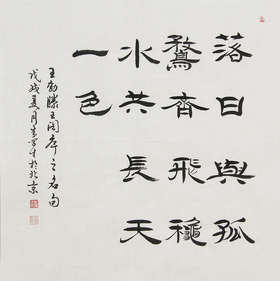 落日與孤
鶩齊飛穐
水共長天
一色
王勃滕王阁序之名句
戊戌夏月於北京